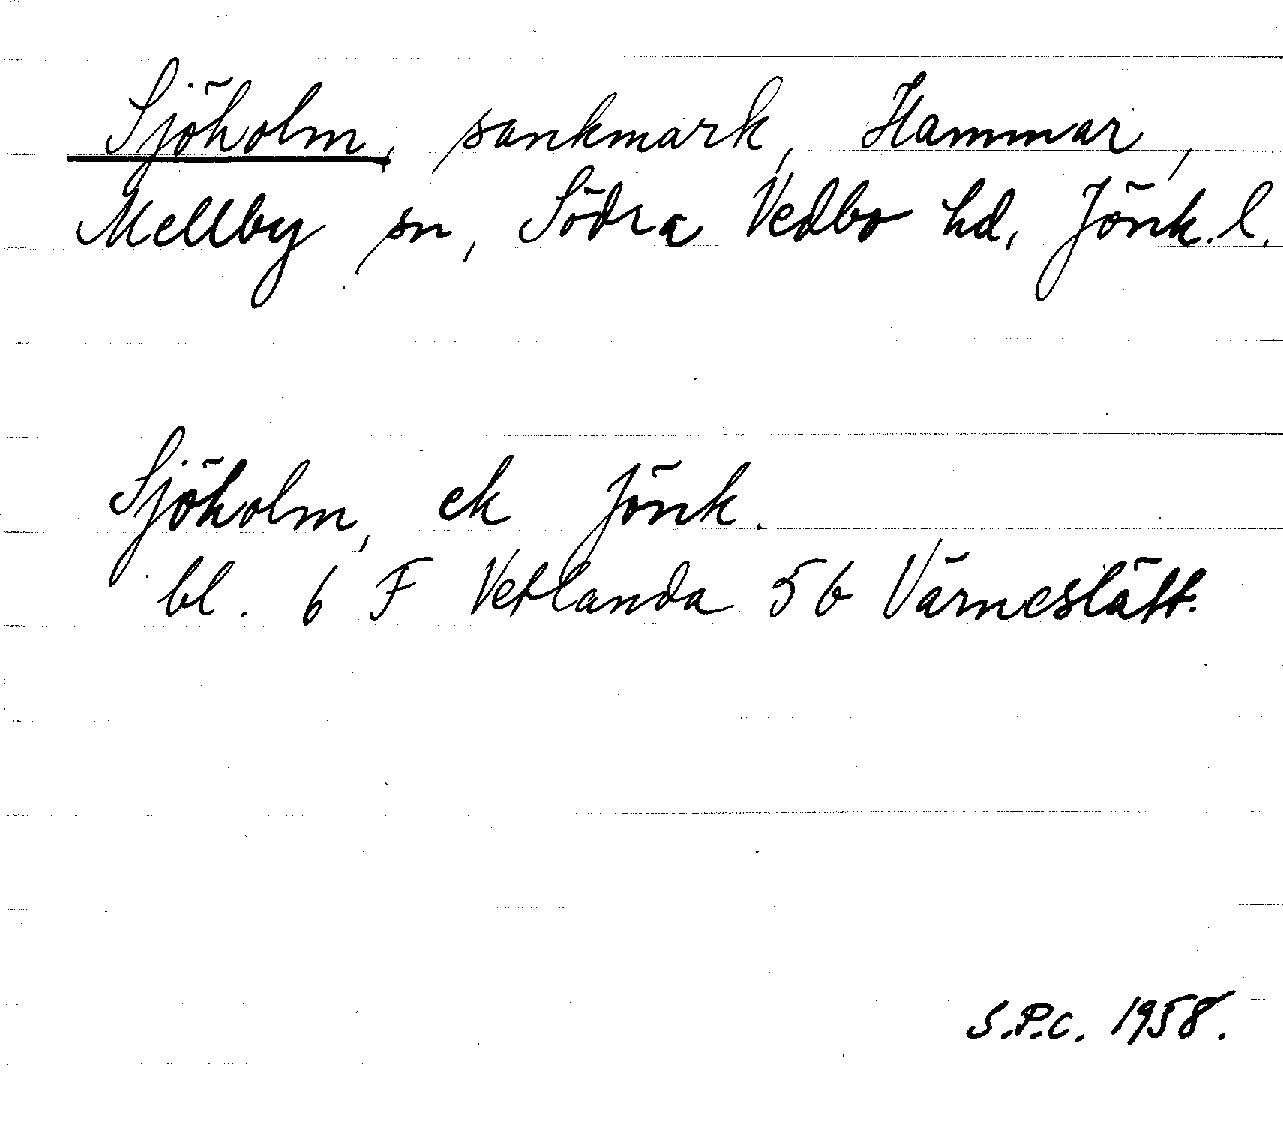 Sjöholm, sankmark, Hammar,
Mellby sn, Södra Vedbo hd, Jönk. l.
Sjöholm, ek Jönk.
bl. 6 F Vetlanda 5b Värneslätt.
S.P.C. 1958.